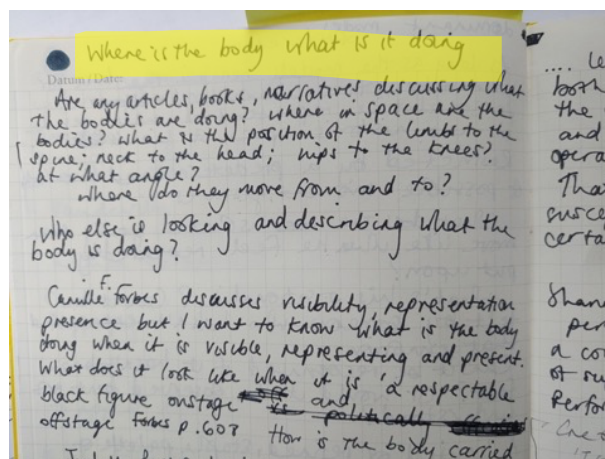 Where is the body what is it doing
Datum / Date:
Are any articles, books, narratives discussing what
the bodies are doing? Where in space are the
bodies? What is the position of the limbs to the
spine; neck to the head; hips to the knees?
at what angle?
Where do they move from and to?
Who else is looking and describing what the
body is doing?
Camille F. Forbes discusses visibility, representation
presence but I want to know what is the body
doing when it is visible, representing and present.
What does it look like when it is 'a respectable
black figure onstage and
offstage Forbes p.603 politically
How is the body carried
.... le
both
the
and
opera
Tha
susce
certa
Shan
per
a co
of su
Perfor